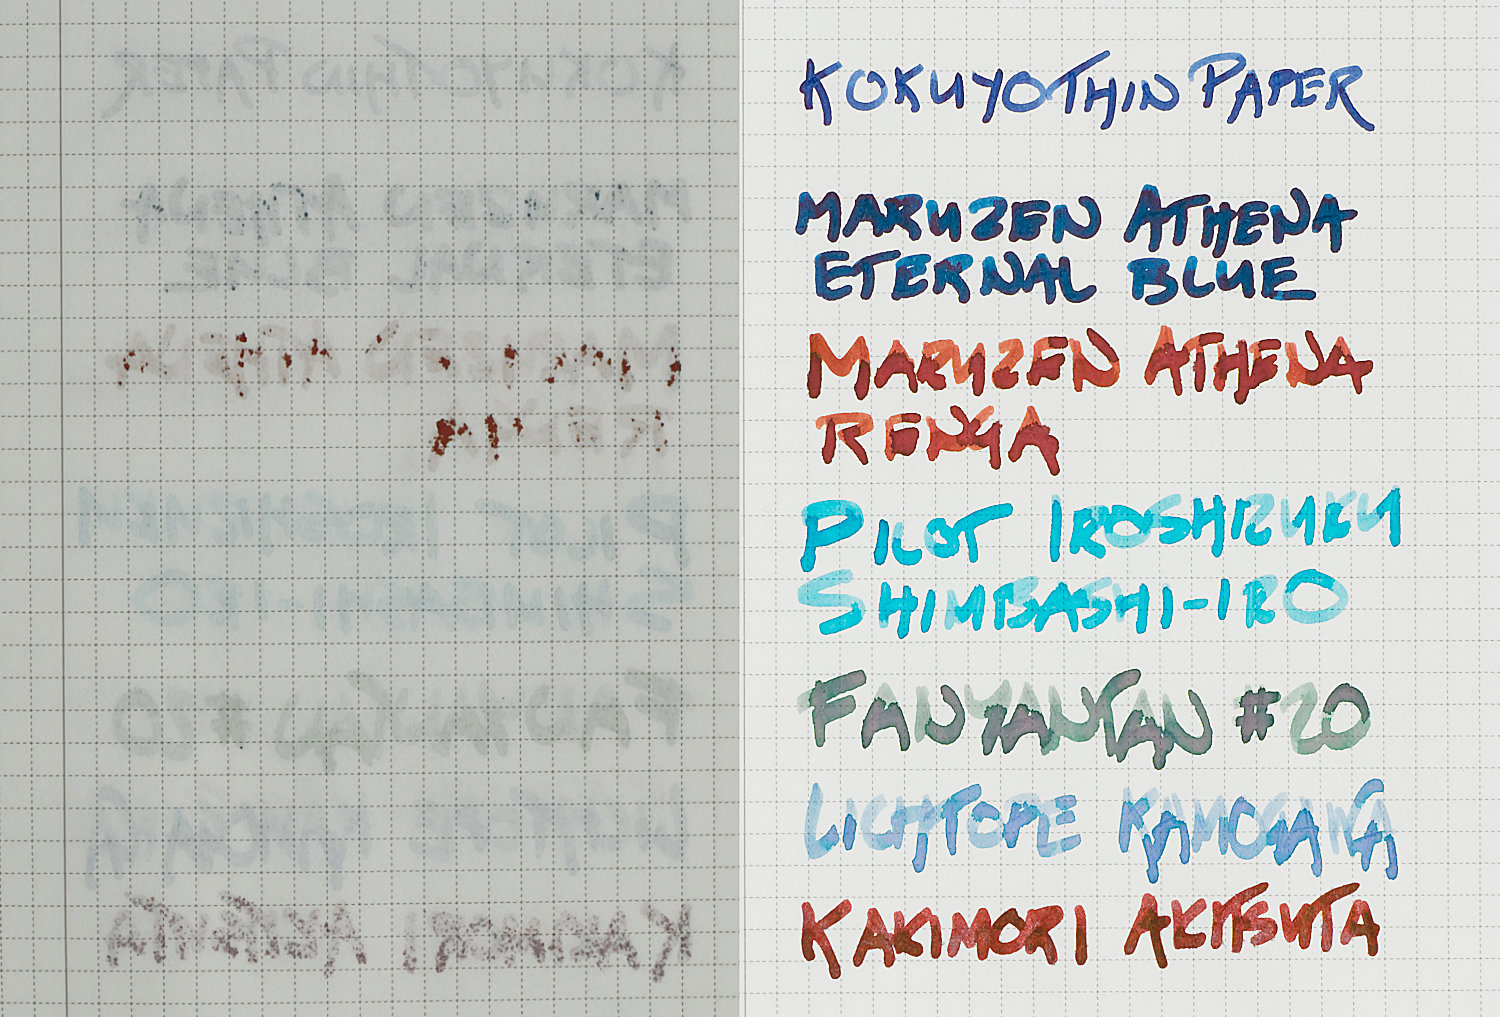 KOKUYO THIN PAPER
MARUZEN ATHENA
ETERNAL BLUE
MARUZEN ATHENA
RENGA
PILOT IROSHIZUKU
SHIMBASHI-IRO
FANYANTAN #20
LICHTOPE KAMOGAWA
KAKIMORI AKITSUTA